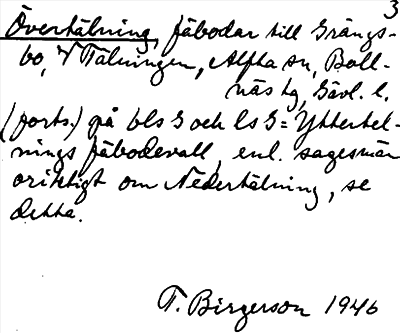 3
Övertälning, fäbodar till Grängs-
bo, V Tälningen, Alfta sn, Boll-
näs tg, Gävl. l.
(forts.) på bls G och ls G = Yttertel-
nings fäbodevall, enl. sagesmän
oriktigt om Nedertälning, se
detta.
T. Birgerson 1946